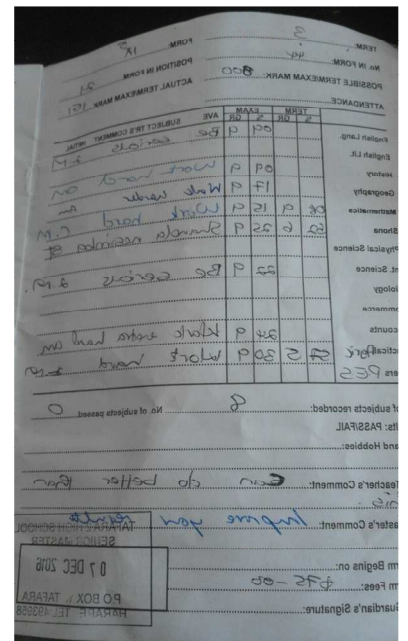 TERM: 3 FORM:
No. IN FORM: 44 POSITION IN FORM
POSSIBLE TERM/EXAM MARK: 800 ACTUAL TERM/EXAM MARK 151
ATTENDANCE
TERM EXAM
S GR S GR AVE SUBJECT TR'S COMMENT INITIAL
English Lang. 09 9 Be serious
English Lit.
History 09 9 Work hard
Geography 17 9 Work harder
Mathematics 9 15 9 Work hard
Shona 50 6 25 9
Physical Science
nt. Science 22 9 Be serious
iology
ommerce
ccounts 24 9 Work extra hard
ctical 57 5 30 9 Work hard
ers
of subjects recorded: 8 No. of subjects passed: 0
lts: PASS/FAIL
and Hobbies:
Teacher's Comment: Can do better than
this
aster's Comment: Improve your results
TAFARA HIGH SCHOOL
SENIOR MASTER
rm Begins on:
07 DEC 2016
rm Fees: $75-00
P.O. BOX TAFARA
uardian's Signature:
HARARE TEL